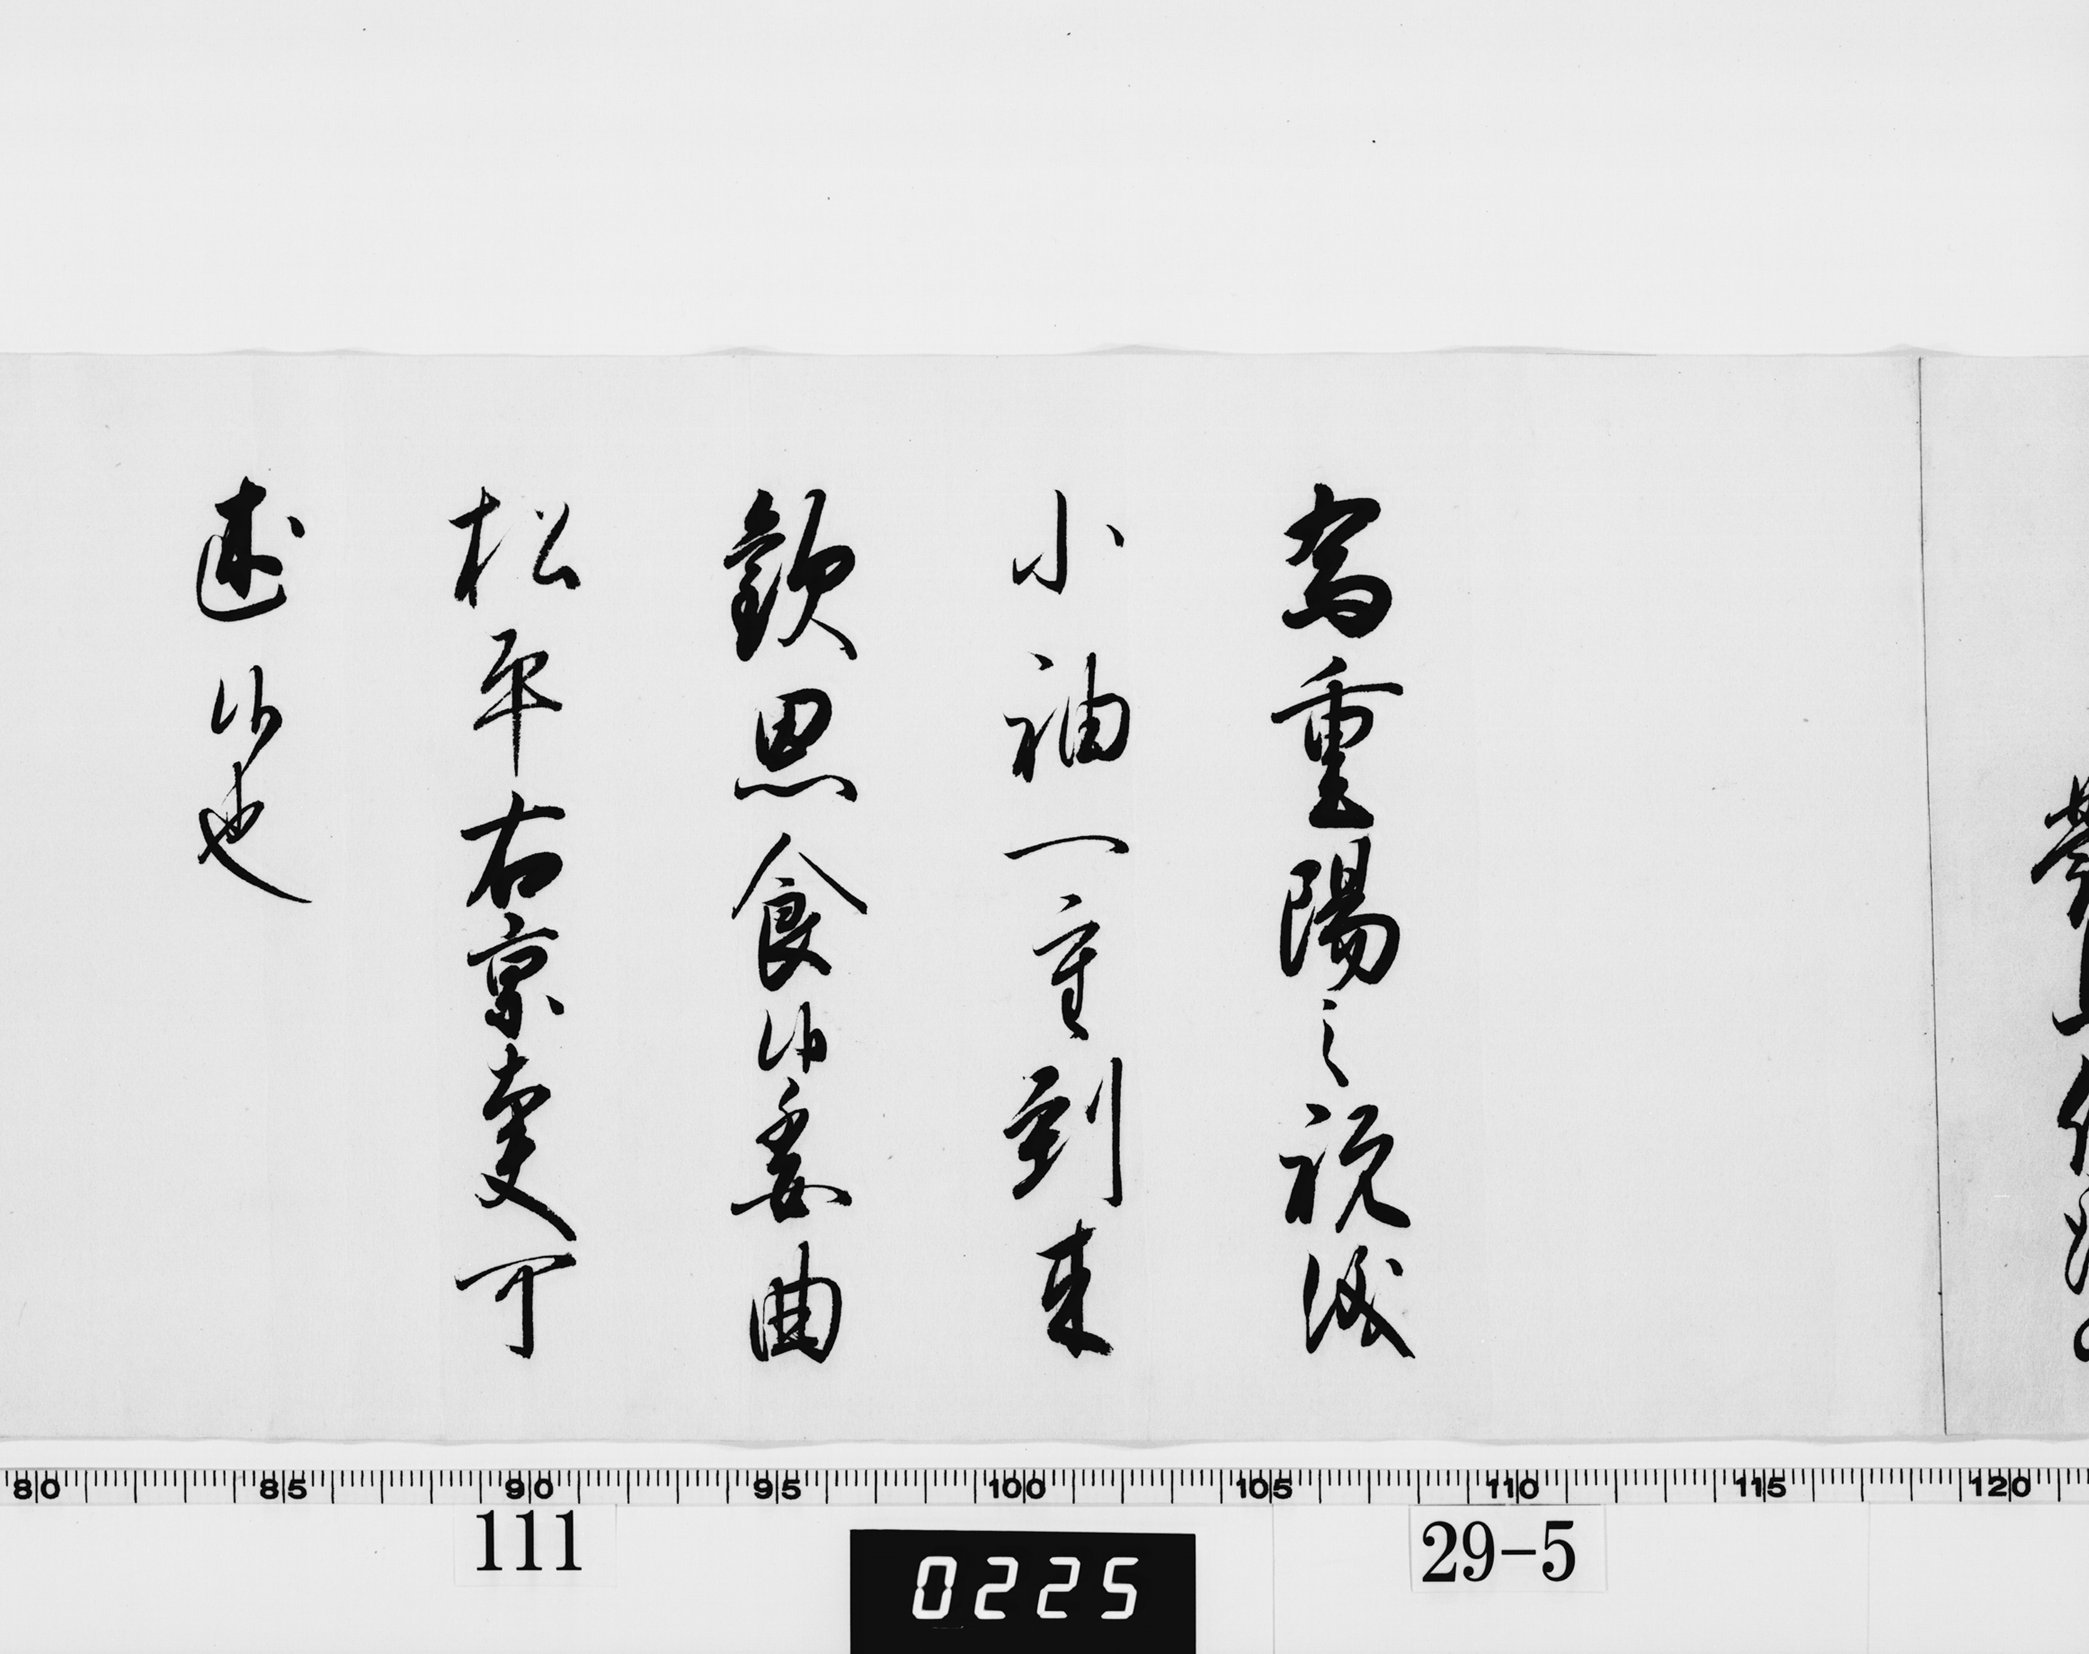 為重陽之祝儀
小袖一重到来
歓思食候委曲
松平右京大夫可
述候也
80 85 90 95 100 105 110 115 120
111
0225
29-5